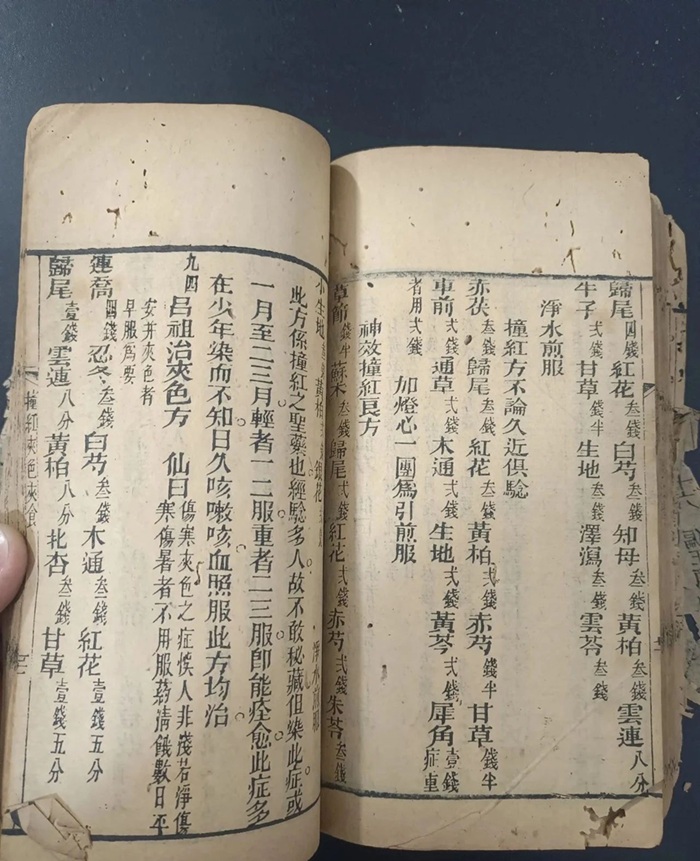 歸尾四錢 紅花叁錢 白芍叁錢 知母叁錢 黃柏叁錢 雲連八分
牛子弍錢 甘草錢半 生地叁錢 澤瀉叁錢 雲苓叁錢
淨水煎服
撞紅方不論久近俱騐
赤茯叁錢 歸尾叁錢 紅花弍錢 黃柏叁錢 赤芍錢半 甘草錢半
車前弍錢 通草弍錢 木通弍錢 生地弍錢 黃芩弍錢 犀角壹錢症重
者用弍錢
加燈心一團爲引煎服
神效撞紅良方
草前錢半 蘇木叁錢 歸尾弍錢 紅花弍錢 赤芍弍錢 朱苓叁錢
小生地 黃柏 銀花 淨水煎服
此方係撞紅之聖藥也經騐多人故不敢秘藏但染此症或
一月至二三月輕者一二服重者二三服卽能痊愈此症多
在少年染而不知日久咳嗽咳血照服此方均治
九四 呂祖治夾色方 仙曰傷寒夾色之症悞人非淺若淨傷
寒傷暑者不用服葯請餓數日平
安并夾色者
早服爲要
連喬四錢 忍冬叁錢 白芍叁錢 木通叁錢 紅花壹錢五分
歸尾壹錢 雲連八分 黃柏八分 北杏叁錢 甘草壹錢五分
撞紅夾色夾飡